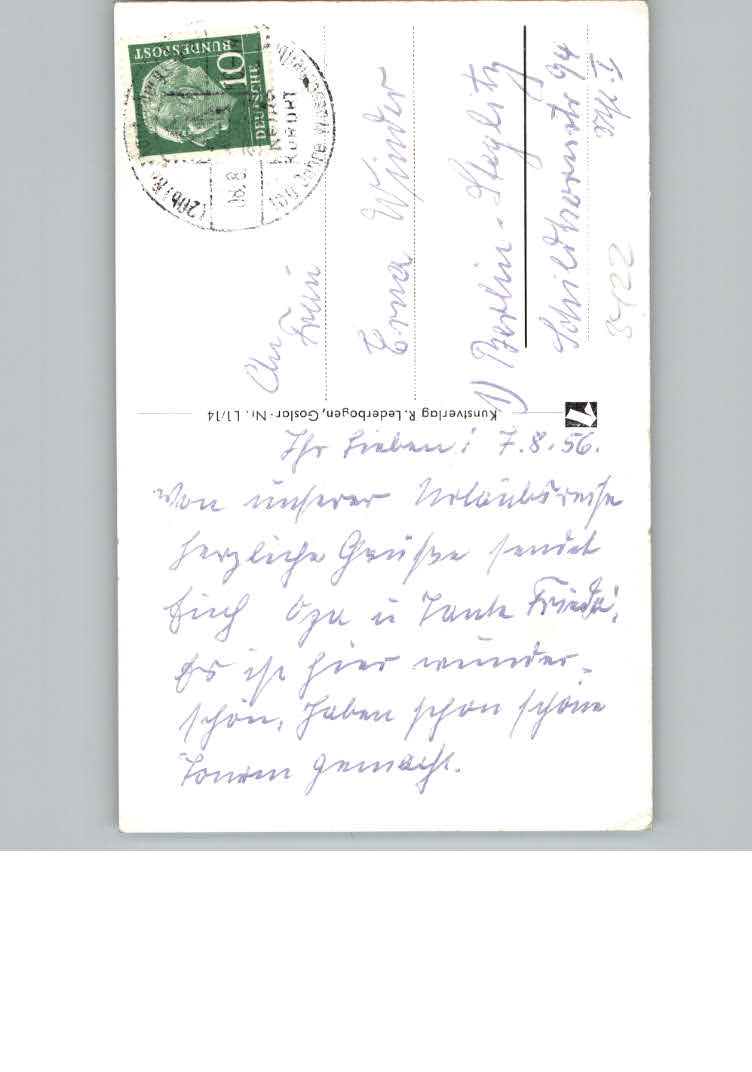 Ihr Lieben! 7.8.56.
Von unserer Urlaubsreise
herzliche Grüße sendet
Euch Opa u Tante Frieda,
Es ist hier wunder-
schön, haben schon schöne
Touren gemacht.
Kunstverlag R. Lederbogen, Goslar · Nr. L1/14
An
Frau
Erna Winder
1) Berlin-Steglitz
Schildhornstr 94
DEUTSCHE
BUNDESPOST
10
KURORT